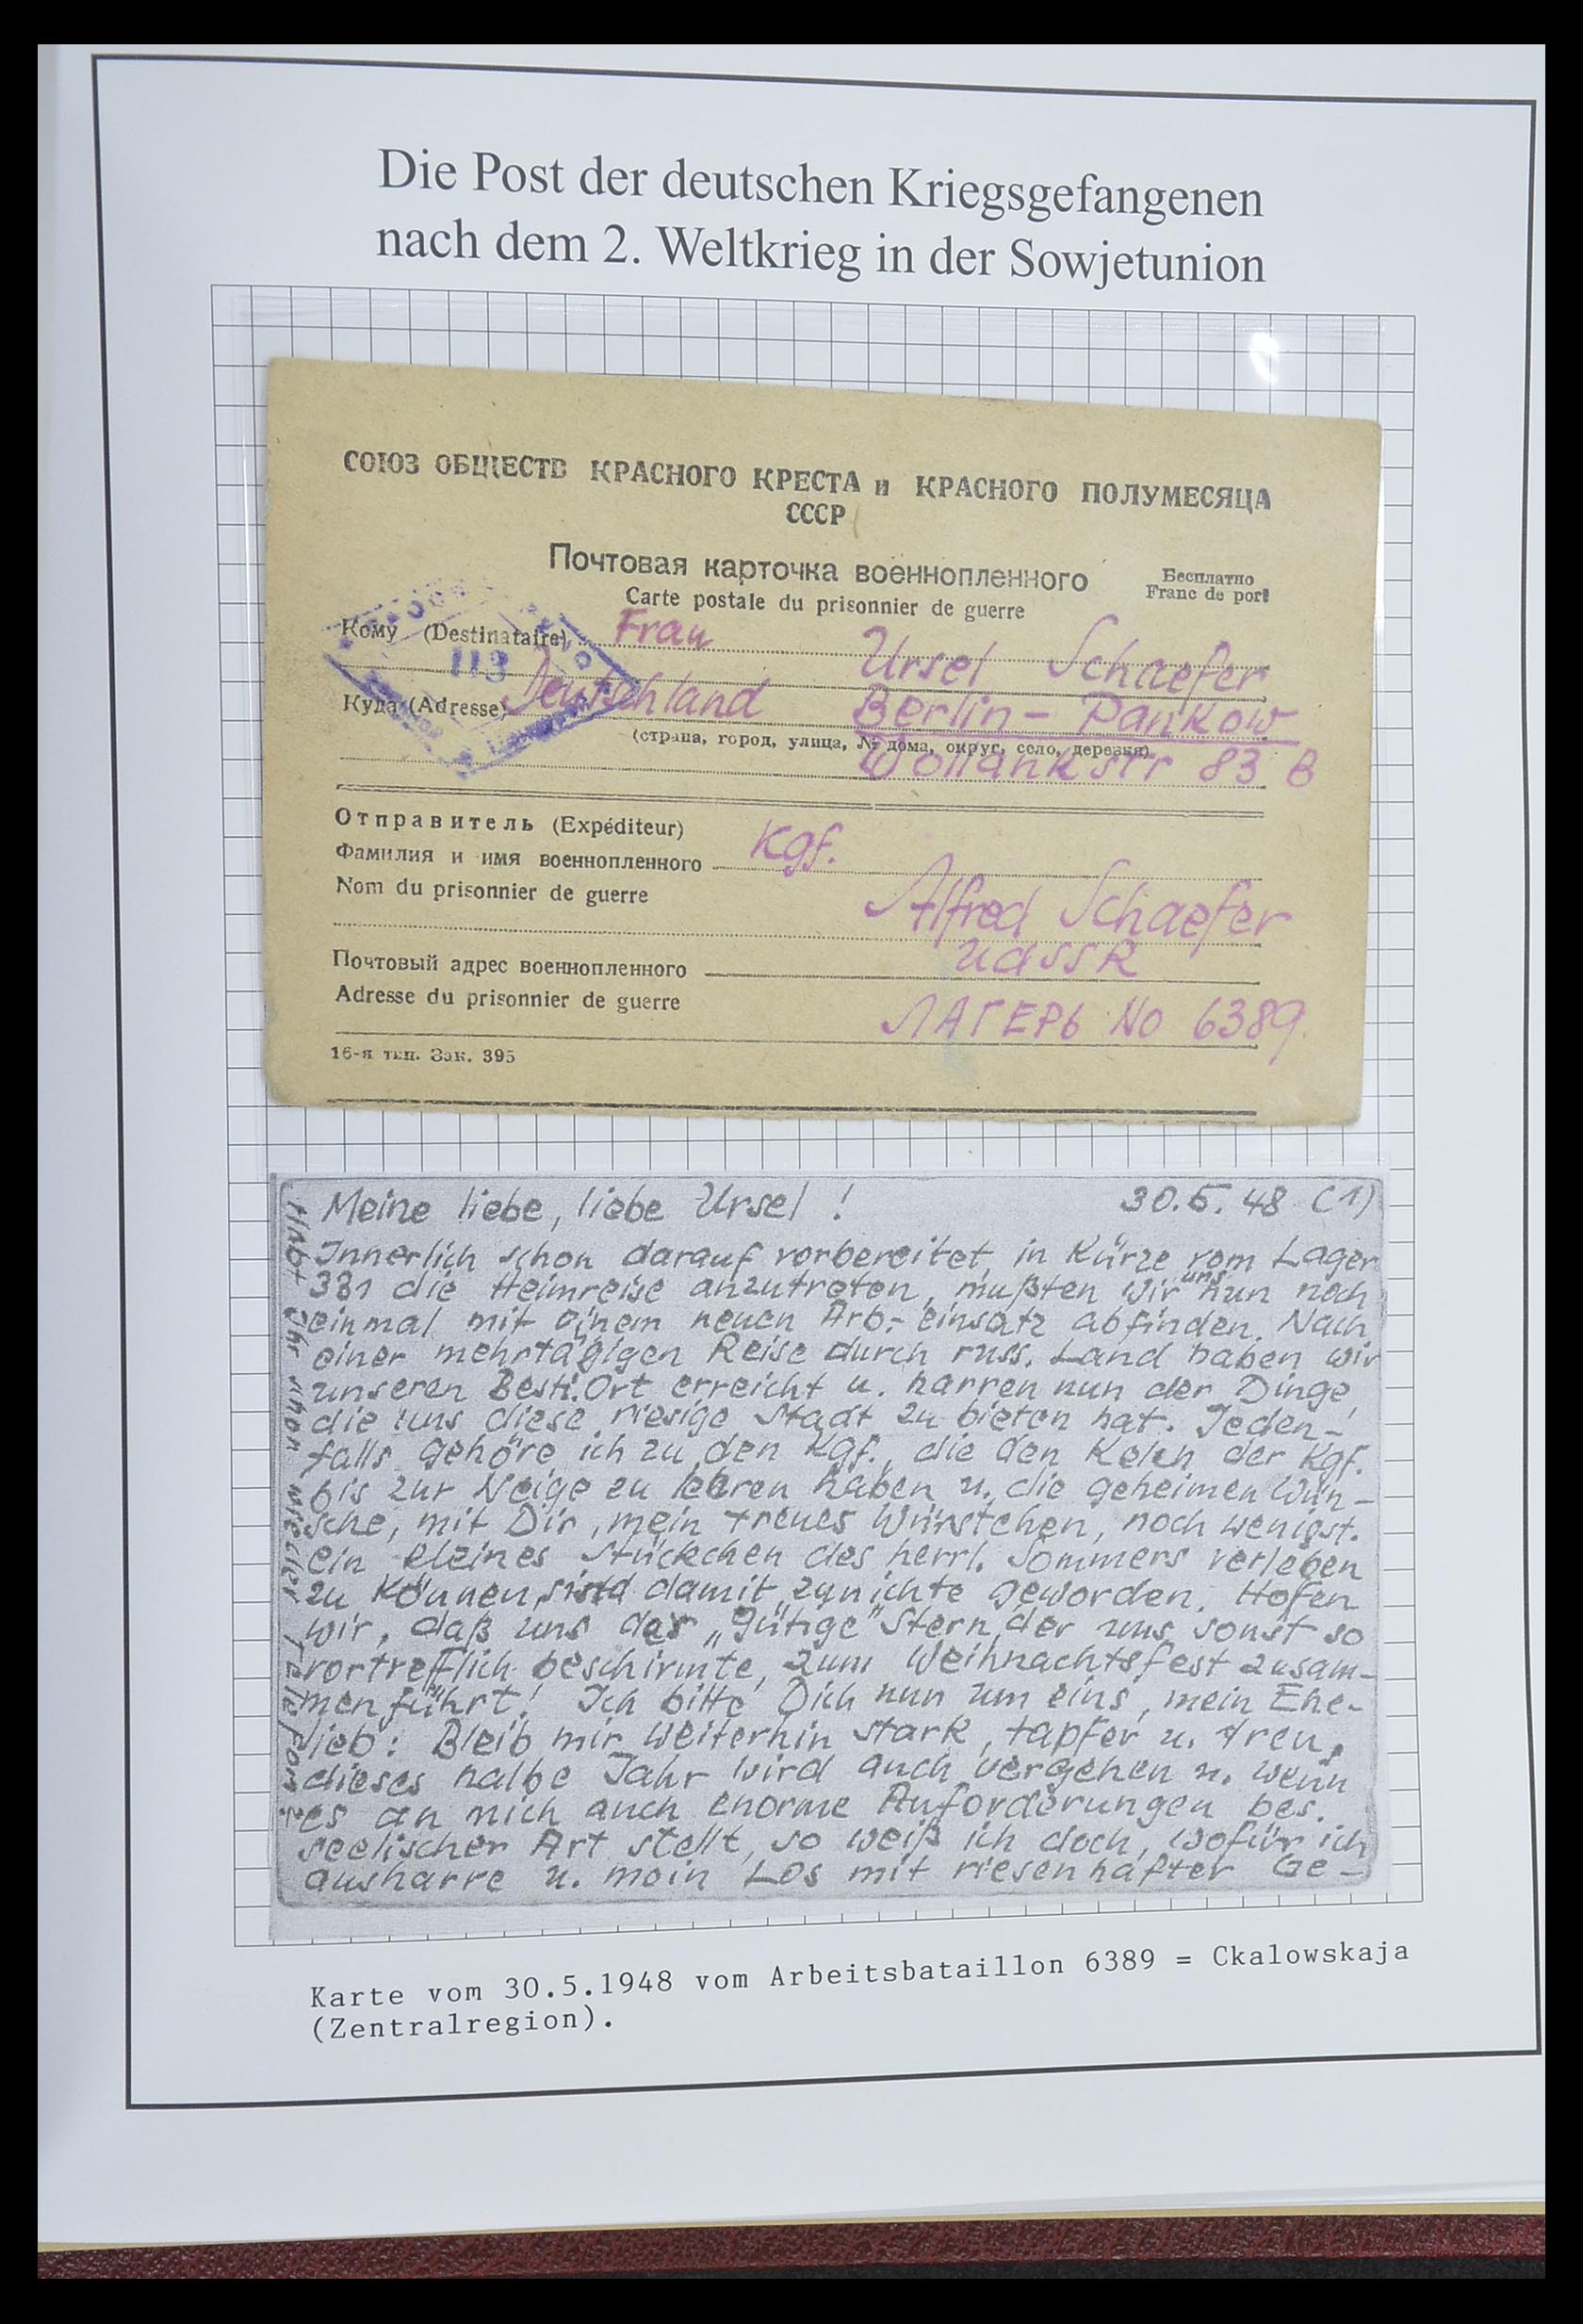 Die Post der deutschen Kriegsgefangenen
nach dem 2. Weltkrieg in der Sowjetunion
СОЮЗ ОБЩЕСТВ КРАСНОГО КРЕСТА и КРАСНОГО ПОЛУМЕСЯЦА
СССР
Почтовая карточка военнопленного
Бесплатно
Carte postale du prisonnier de guerre
Franc de port
Кому (Destinataire) Frau
Ursel Schaefer
113
Куда (Adresse) Deutschland Berlin-Pankow
(страна, город, улица, № дома, округ, село, деревня)
Wollankstr 83 B
Отправитель (Expéditeur)
Фамилия и имя военнопленного Kgf.
Nom du prisonnier de guerre
Alfred Schaefer
UdSSR
Почтовый адрес военнопленного
Adresse du prisonnier de guerre
ЛАГЕРЬ No 6389
16-я тип. Зак. 395
Meine liebe, liebe Ursel! 30.5.48 (1)
Innerlich schon darauf vorbereitet, in Kürze vom Lager
331 die Heimreise anzutreten, mußten wir uns nun noch
einmal mit einem neuen Arb.-einsatz abfinden. Nach
einer mehrtägigen Reise durch russ. Land haben wir
unseren Best.Ort erreicht u. harren nun der Dinge,
die uns diese riesige Stadt zu bieten hat. Jeden-
falls gehöre ich zu den Kgf., die den Kelch der Kgf.
bis zur Neige zu leeren haben u. die geheimen Wün-
sche, mit Dir, mein treues, noch wenigst.
ein kleines Stückchen des herrl. Sommers verleben
zu können, sind damit zunichte geworden. Hofen
wir, daß uns der „gütige" Stern, der uns sonst so
vortrefflich beschirmte, zum Weihnachtsfest zusam-
menführt! Ich bitte Dich nun um eins, mein Ehe-
lieb: Bleib mir weiterhin stark, tapfer u. treu,
dieses halbe Jahr wird auch vergehen u. wenn
es an mich auch enorme Anforderungen bes.
seelischer Art stellt, so weiß ich doch, wofür ich
ausharre u. mein Los mit riesenhafter Ge-
Habt Ihr schon wieder Telefon?
Karte vom 30.5.1948 vom Arbeitsbataillon 6389 = Ckalowskaja
(Zentralregion).